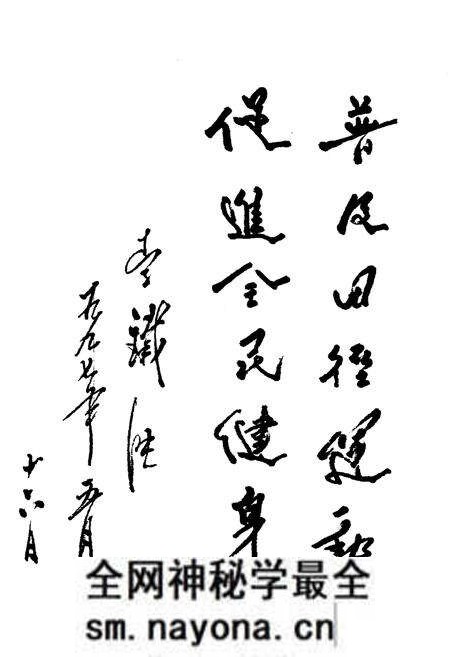 普及田徑運動
促進全民健身
李鐵映
一九九七年五月
十六日
全网神秘学最全
sm.nayona.cn